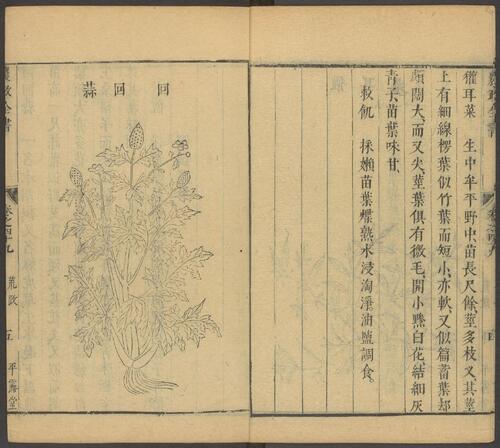 獾耳菜　生中牟平野中、苗長尺餘、莖多枝叉、其莖
上有細線楞、葉似竹葉而短小、亦軟、又似萹蓄葉却
頗闊大、而又尖、莖葉俱有微毛、開小黲白花、結細灰
青子、苗葉味甘、
救飢　採嫩苗葉煠熟、水浸淘淨、油鹽調食、
回回蒜
農政全書
荒政
五
平露堂